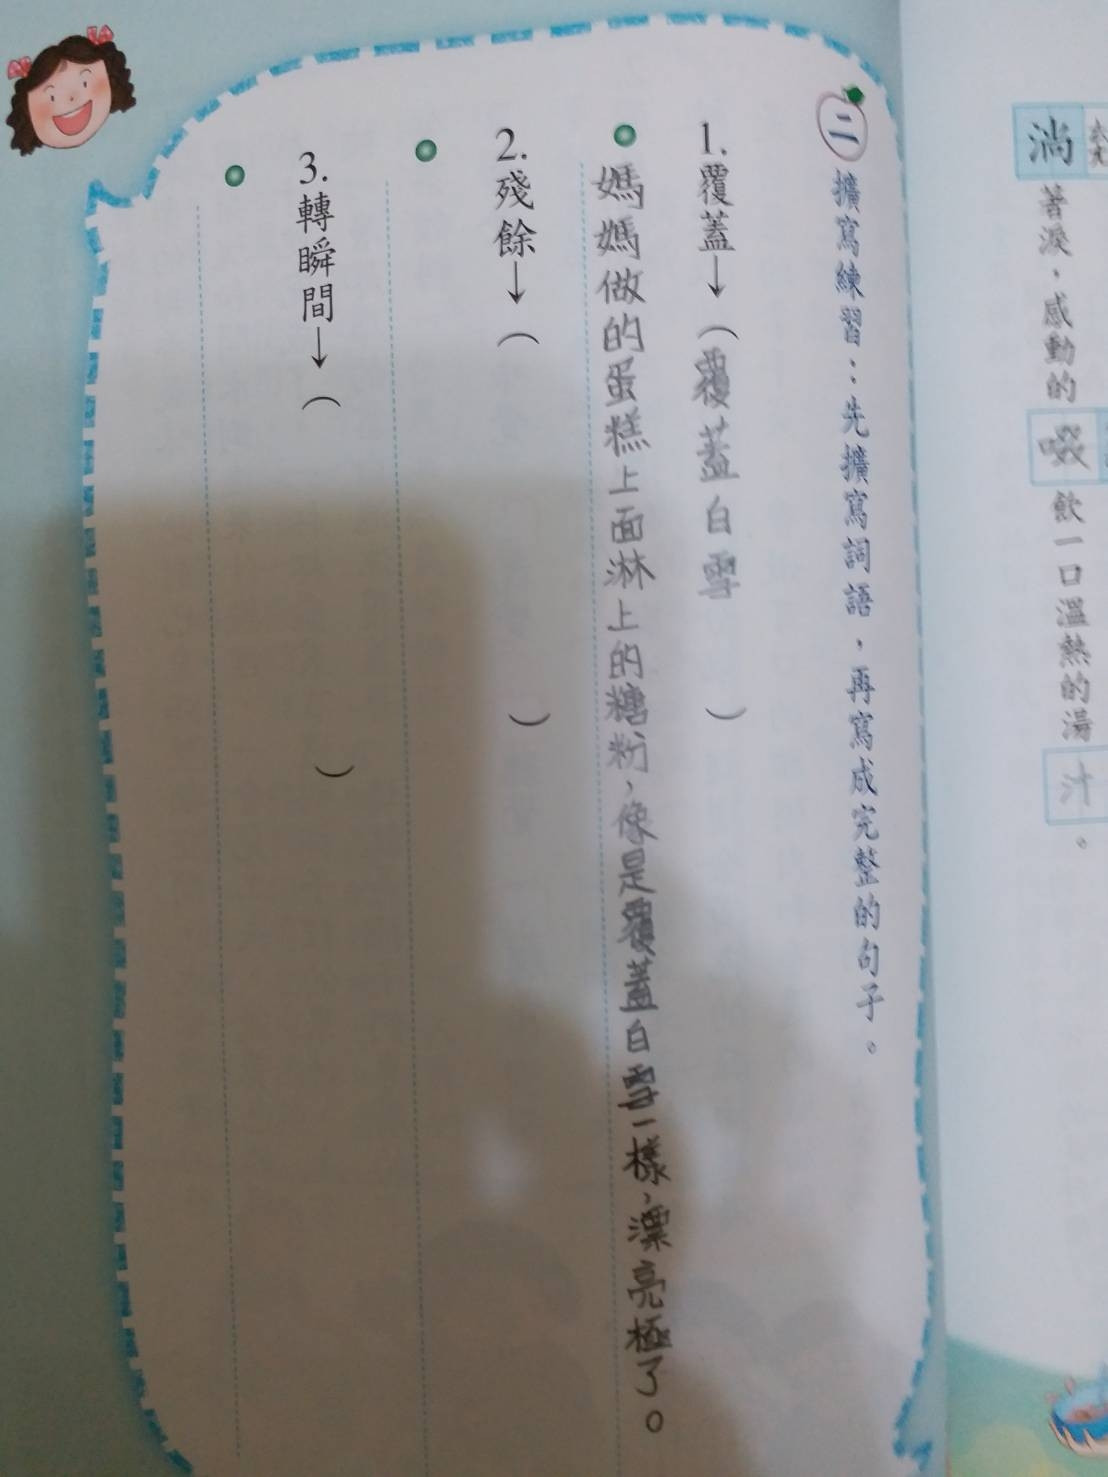 淌著淚，感動的啜飲一口溫熱的湯汁。
二 擴寫練習：先擴寫詞語，再寫成完整的句子。
1.覆蓋→（覆蓋白雪）
媽媽做的蛋糕上面淋上的糖粉，像是覆蓋白雪一樣，漂亮極了。
2.殘餘→（ ）
3.轉瞬間→（ ）